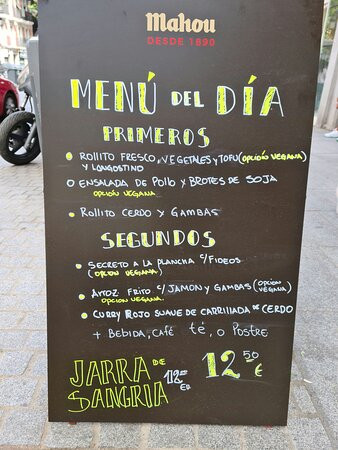 mahou
DESDE 1890
MENÚ DEL DÍA
PRIMEROS
ROLLITO FRESCO, VEGETALES Y TOFU (OPCIÓN VEGANA)
Y LANGOSTINO
ENSALADA DE POLLO Y BROTES DE SOJA
OPCIÓN VEGANA
ROLLITO CERDO Y GAMBAS
SEGUNDOS
SECRETO A LA PLANCHA C/FIDEOS
(OPCIÓN VEGANA)
ARROZ FRITO C/JAMON Y GAMBAS (OPCIÓN VEGANA)
OPCION VEGANA
CURRY ROJO SUAVE DE CARRILLADA DE CERDO
+ BEBIDA, CAFÉ té, o POSTRE
12,50 €
JARRA DE
SANGRIA